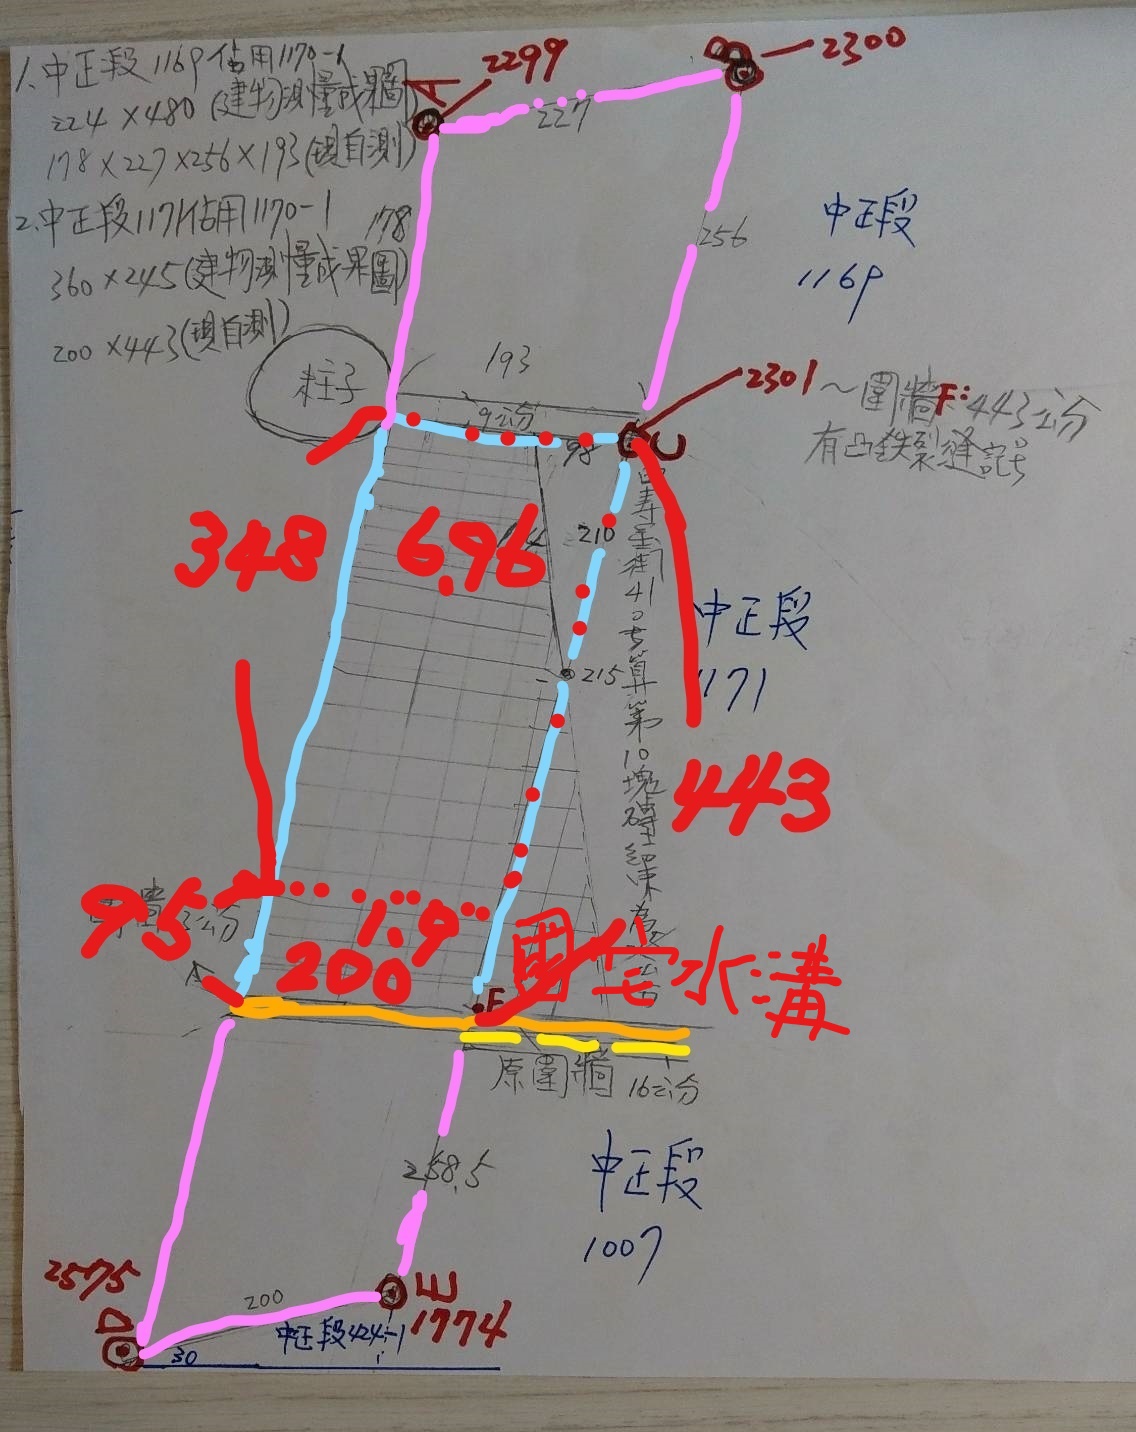 1.中正段1169佔用1170-1
224×480(建物測量成果圖)
178×227×256×193(現自測)
2.中正段1171佔用1170-1
360×245(建物測量成果圖)
200×443(現自測)
A
2299
B
2300
227
178
256
中正段
1169
柱子
193
9公分
98
C
2301~圍牆F:443公分
有凸鉄裂縫記号
348
6.96
210
215
中正段
1171
443
95
200
1.9
國宅水溝
F
原圍牆
16公分
258.5
中正段
1007
2575
D
200
E
1774
中正段424-1
30